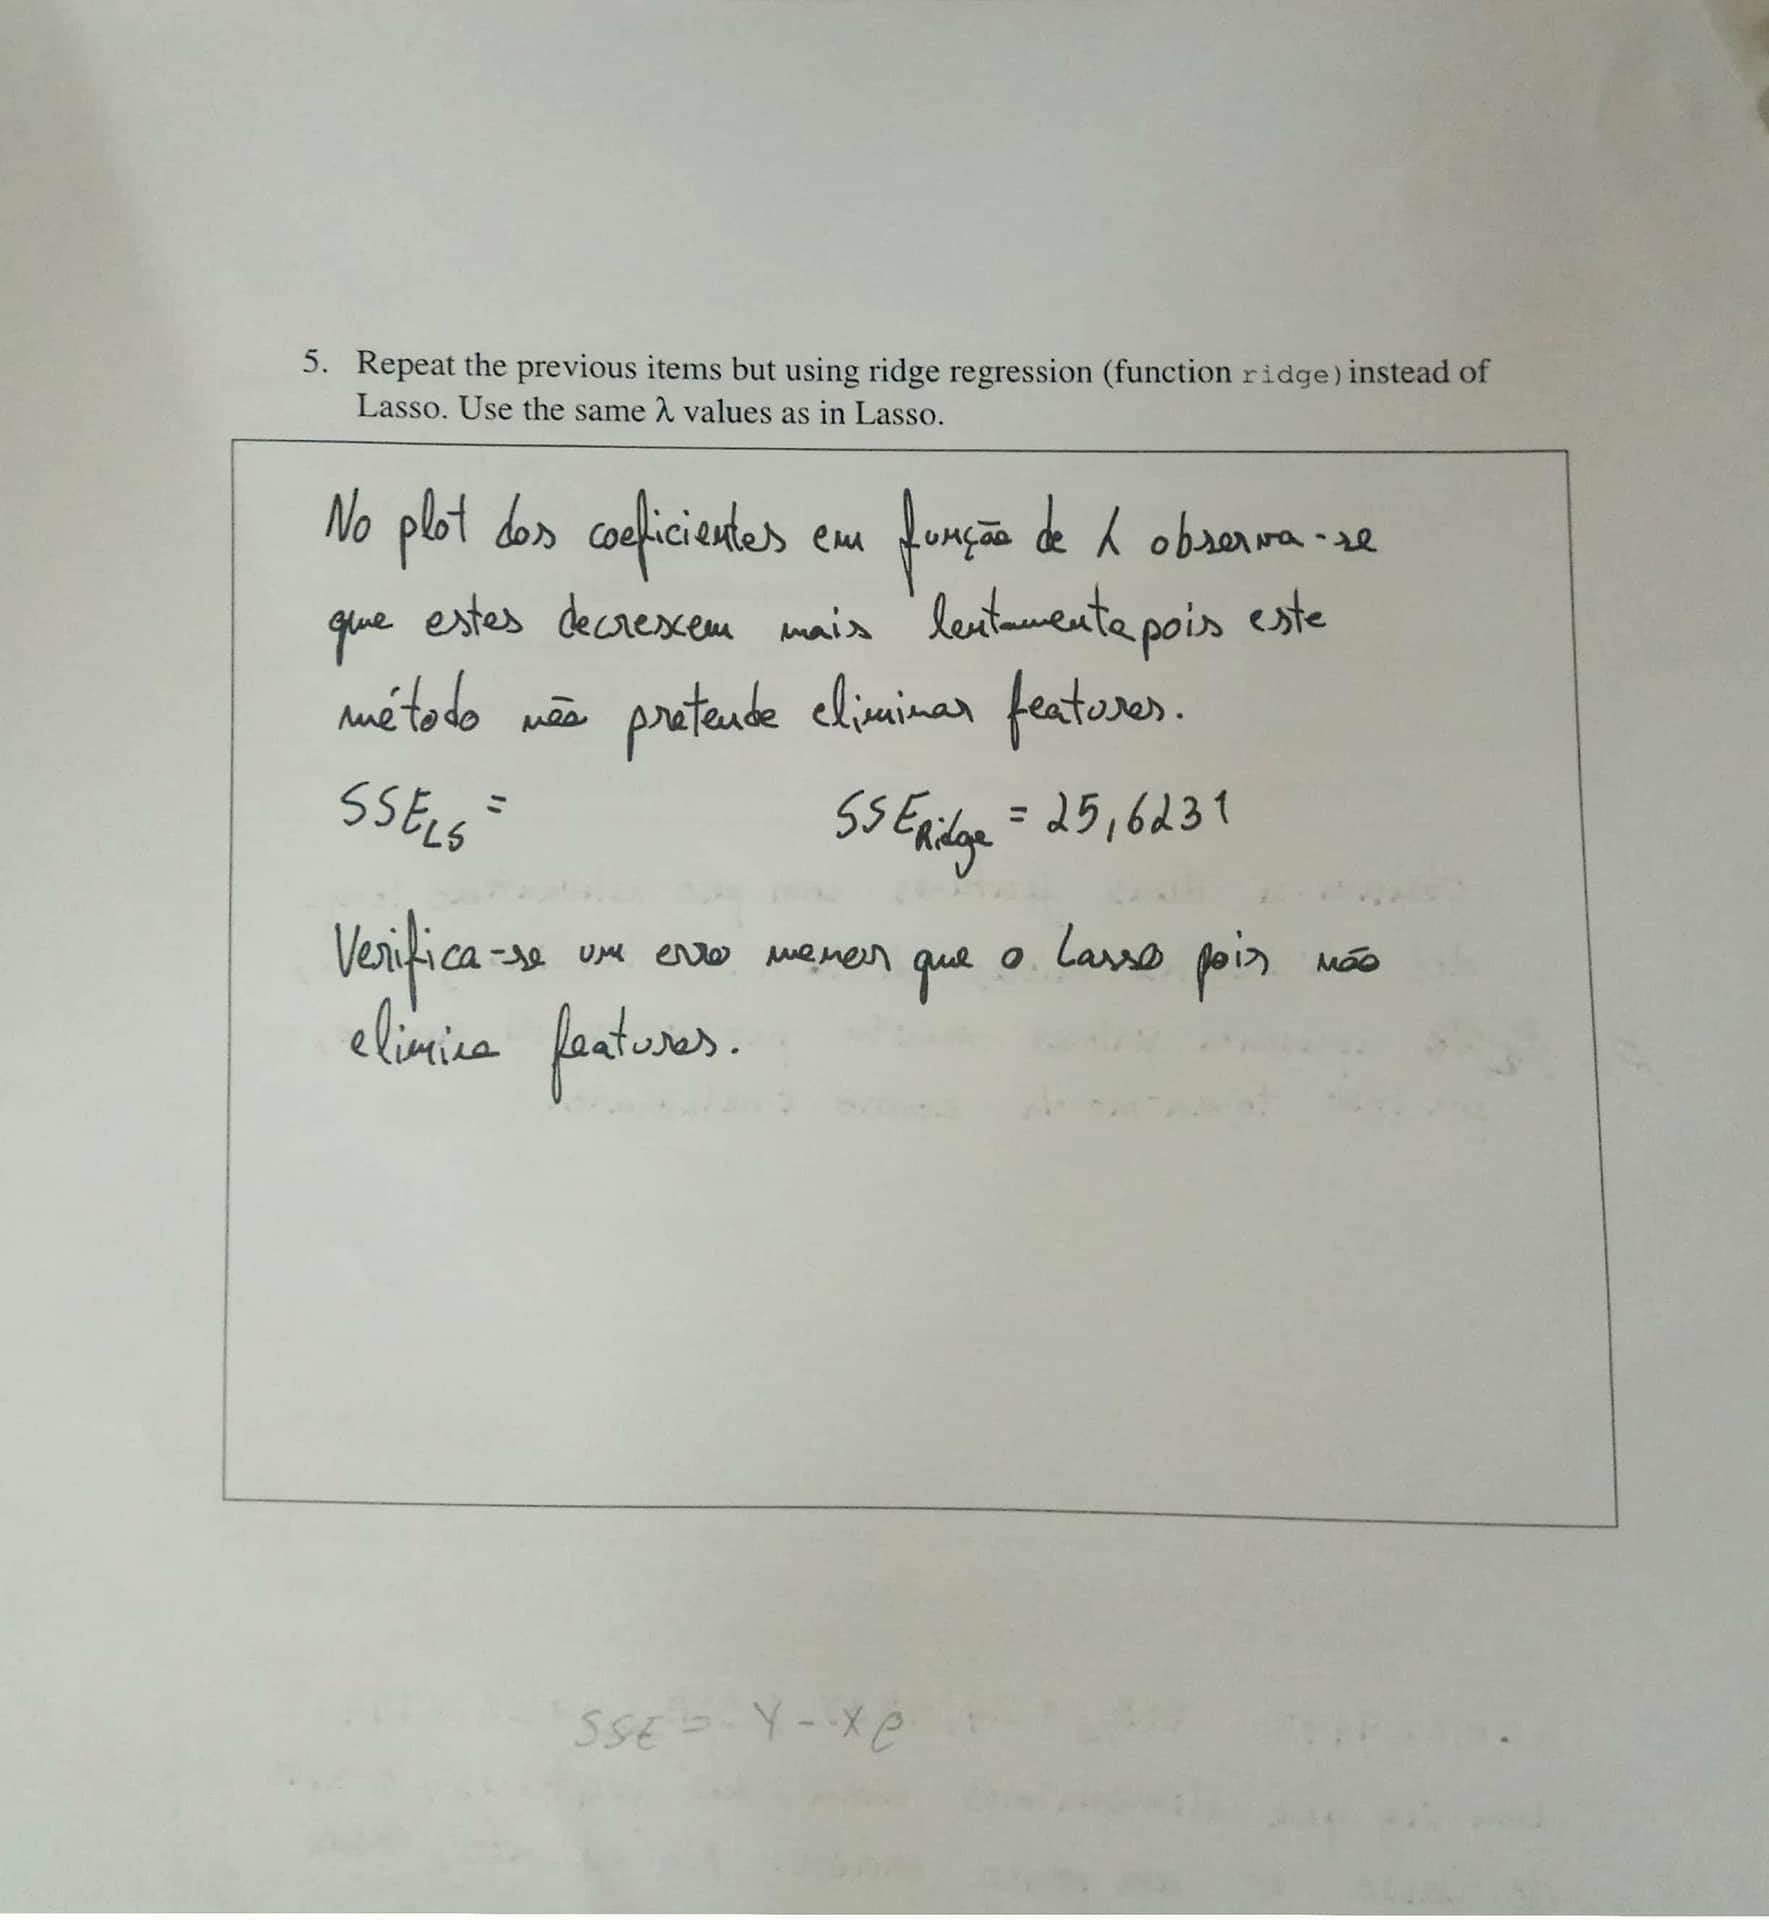 5. Repeat the previous items but using ridge regression (function ridge) instead of
Lasso. Use the same λ values as in Lasso.
No plot dos coeficientes em função de λ observa-se
que estes decrescem mais lentamente pois este
método não pretende eliminar features.
SSE_LS = SSE_Ridge = 25,6231
Verifica-se um erro menor que o Lasso pois não
elimina features.
SSE = Y - Xβ